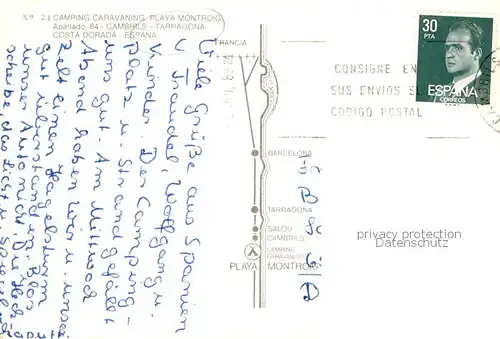 Nº 21 CAMPING CARAVANING, PLAYA MONTROIG
Apartado, 84 - CAMBRILS - TARRAGONA
COSTA DORADA - ESPAÑA
FRANCIA
BARCELONA
TARRAGONA
SALOU
CAMBRILS
CAMPING
CARAVANING
PLAYA MONTROIG
30
PTA
ESPAÑA
CORREOS
CONSIGNE EN
SUS ENVIOS EL
CODIGO POSTAL
Viele Grüße aus Spanien
v. Traudel, Wolfgang u.
Kinder. Der Camping-
platz u. Strand gefällt
uns gut. Am Mittwoch
Abend haben wir u. unser
Zelt einen Hagelsturm
gut überstanden. Blos
unser Auto nicht, die Heck-
scheibe, das Licht u.
privacy protection
Datenschutz